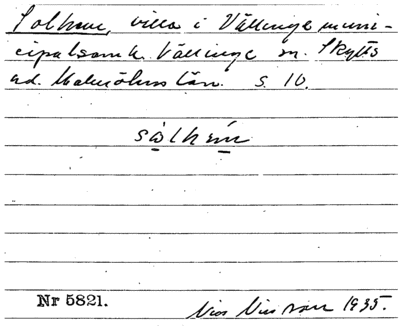 Solhem, villa i Vellinge muni-
cipalsamh. Vellinge sn. Skytts
hd. Malmöhus län. s. 10.
sólhèm
Nr 5821.
Nils Nilsson 1935.